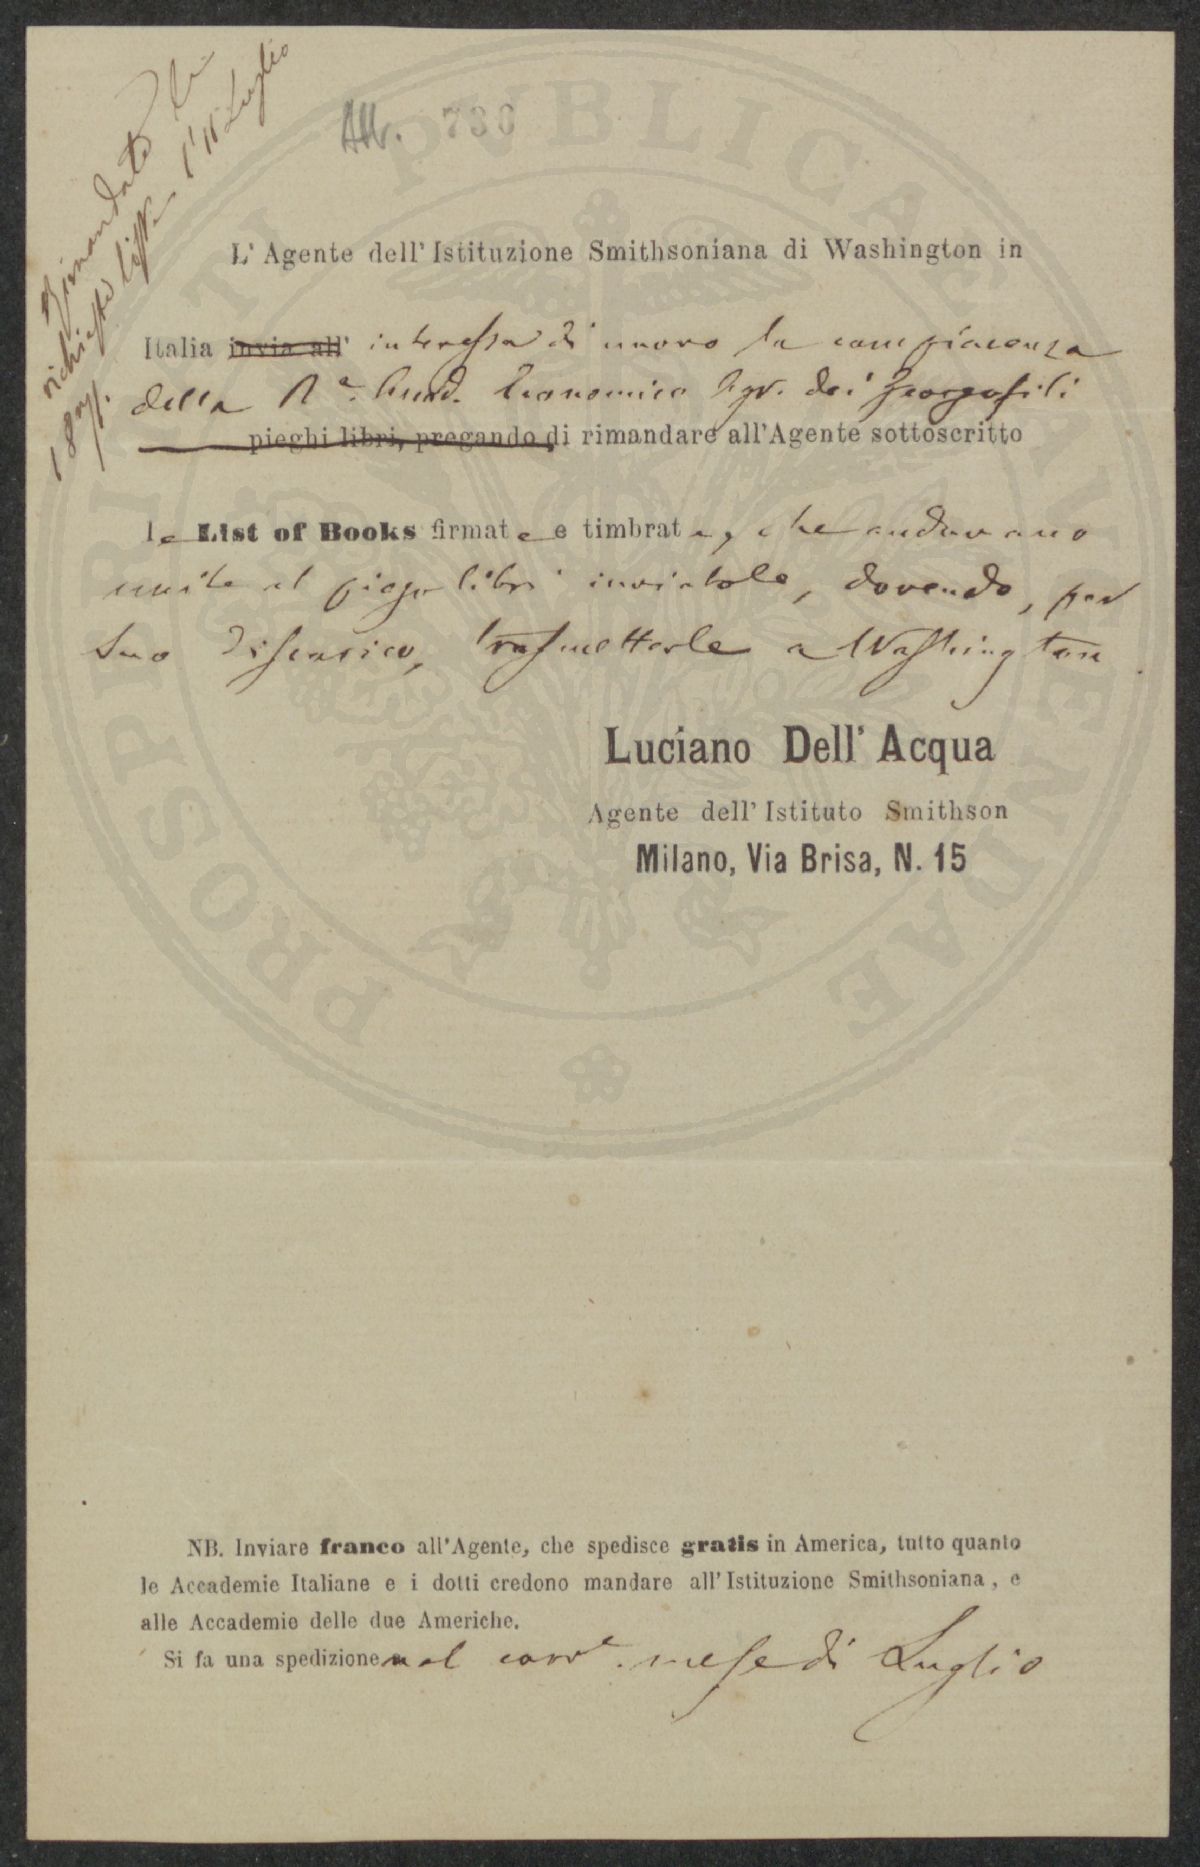 Rimandate le
richieste liste l'11 Luglio
187
All. 730
L' Agente dell' Istituzione Smithsoniana di Washington in
Italia invia all' interessa di nuovo la compiacenza
della R.e Accad. Economico Agr. dei Georgofili
pieghi libri, pregando di rimandare all'Agente sottoscritto
le List of Books firmate e timbrate, che andavano
unite al piego libri inviatole, dovendo, per
suo discarico, trasmetterle a Washington
Luciano Dell' Acqua
Agente dell' Istituto Smithson
Milano, Via Brisa, N. 15
NB. Inviare franco all'Agente, che spedisce gratis in America, tutto quanto
le Accademie Italiane e i dotti credono mandare all'Istituzione Smithsoniana, e
alle Accademie delle due Americhe.
Si fa una spedizione nel corr.e mese di Luglio
PROSPERITATI PVBLICAE AVGENDAE